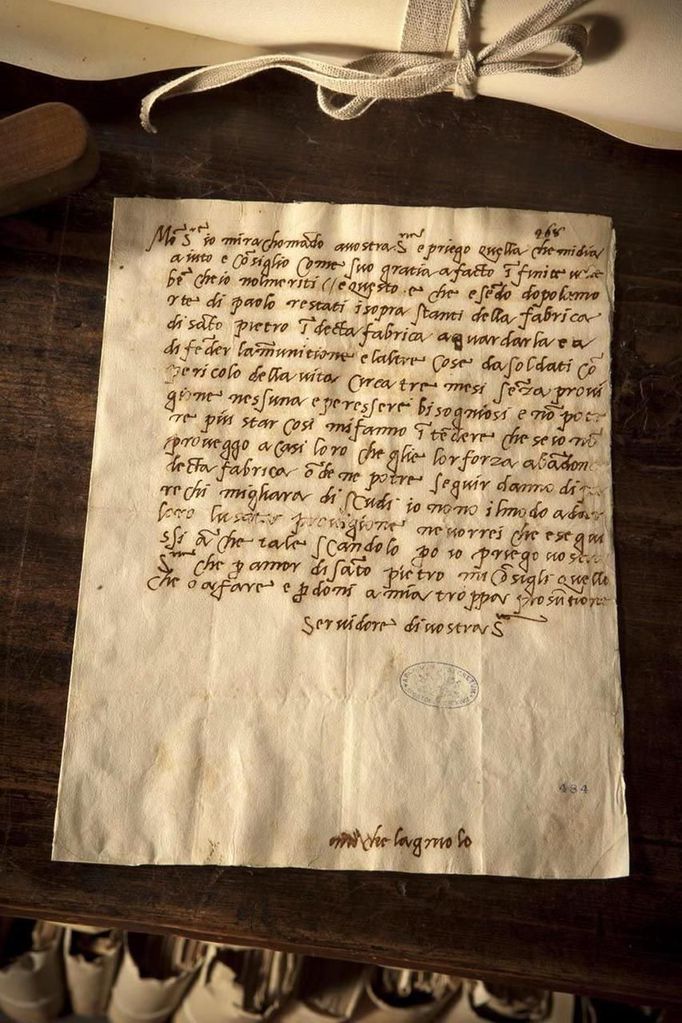 968
Mo.S.re io mi rachomãdo a vostra S.ria e priego quella che mi dia
aiuto e cõsiglio come suo gratia a facto ĩ finite
bẽ che io nol meriti // e questo e che esẽdo dopo la mo
rte di paolo restati i sopra stanti della fabrica
di sãto pietro ĩ decta fabrica a guardarla e a
difẽder la munitione e laltre cose da soldati cõ
pericolo della vita circa tre mesi sẽza provi
gione nessuna e per essere i bisogniosi e nõ pote
re piu star cosi mi fanno ĩ tẽdere che se io nõ
proveggo a casi loro che glie lor forza abãdon
decta fabrica õde ne potre seguir danno di
rechi migliara di scudi io nono il modo a dar
loro provigione ne vorrei che e segui
ssi ã che tale scandolo po io priego vostra
S.ria che p amor di sãto pietro mi cõsigli quello
che o a fare e p doni a mia troppa prosũtione
Servidore di vostra S.
434
michelagniolo